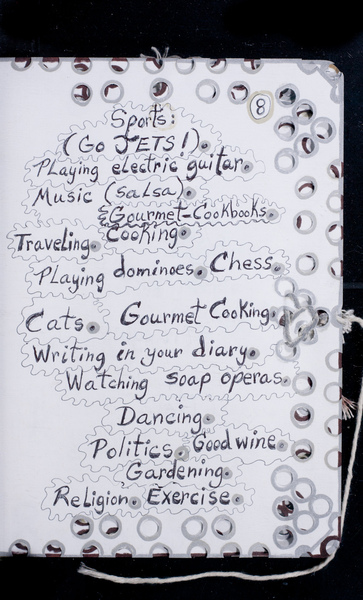 8
Sports:
(Go JETS!).
Playing electric guitar.
Music (salsa).
Gourmet-Cookbooks.
Traveling. Cooking.
Playing dominoes. Chess.
Cats. Gourmet Cooking.
Writing in your diary.
Watching soap operas.
Dancing.
Politics. Good wine.
Gardening.
Religion. Exercise.